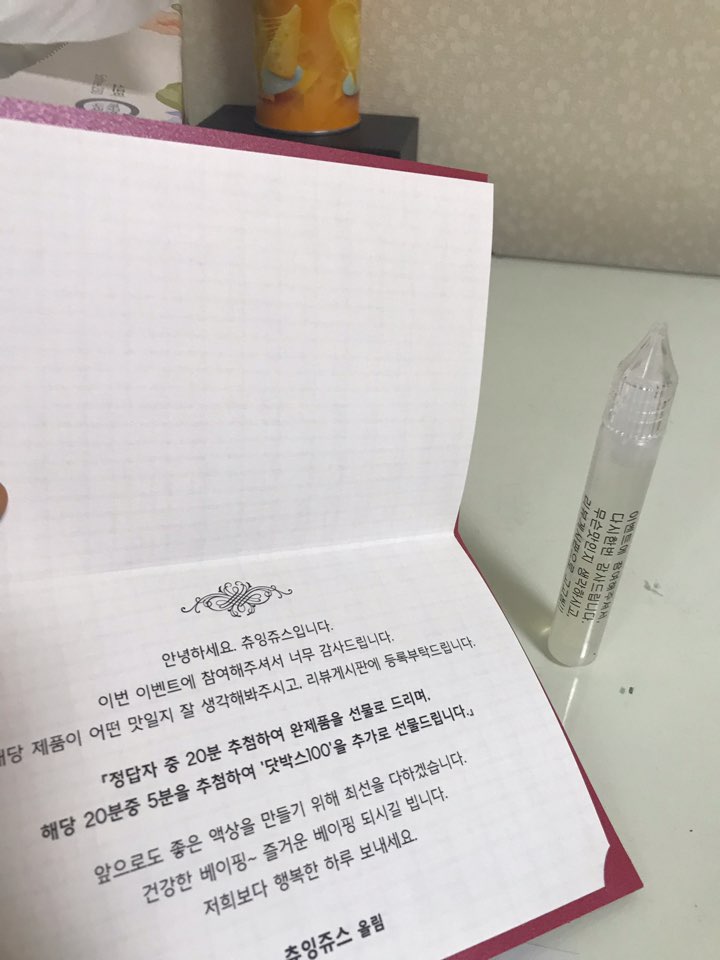 안녕하세요. 츄잉쥬스입니다.
이번 이벤트에 참여해주셔서 너무 감사드립니다.
해당 제품이 어떤 맛일지 잘 생각해봐주시고, 리뷰게시판에 등록부탁드립니다.
「정답자 중 20분 추첨하여 완제품을 선물로 드리며,
해당 20분중 5분을 추첨하여 '닷박스100'을 추가로 선물드립니다.」
앞으로도 좋은 액상을 만들기 위해 최선을 다하겠습니다.
건강한 베이핑~ 즐거운 베이핑 되시길 빕니다.
저희보다 행복한 하루 보내세요.
츄잉쥬스 올림
이벤트에 참여해주셔서
다시한번 감사드립니다.
무슨맛인지 생각하시고,